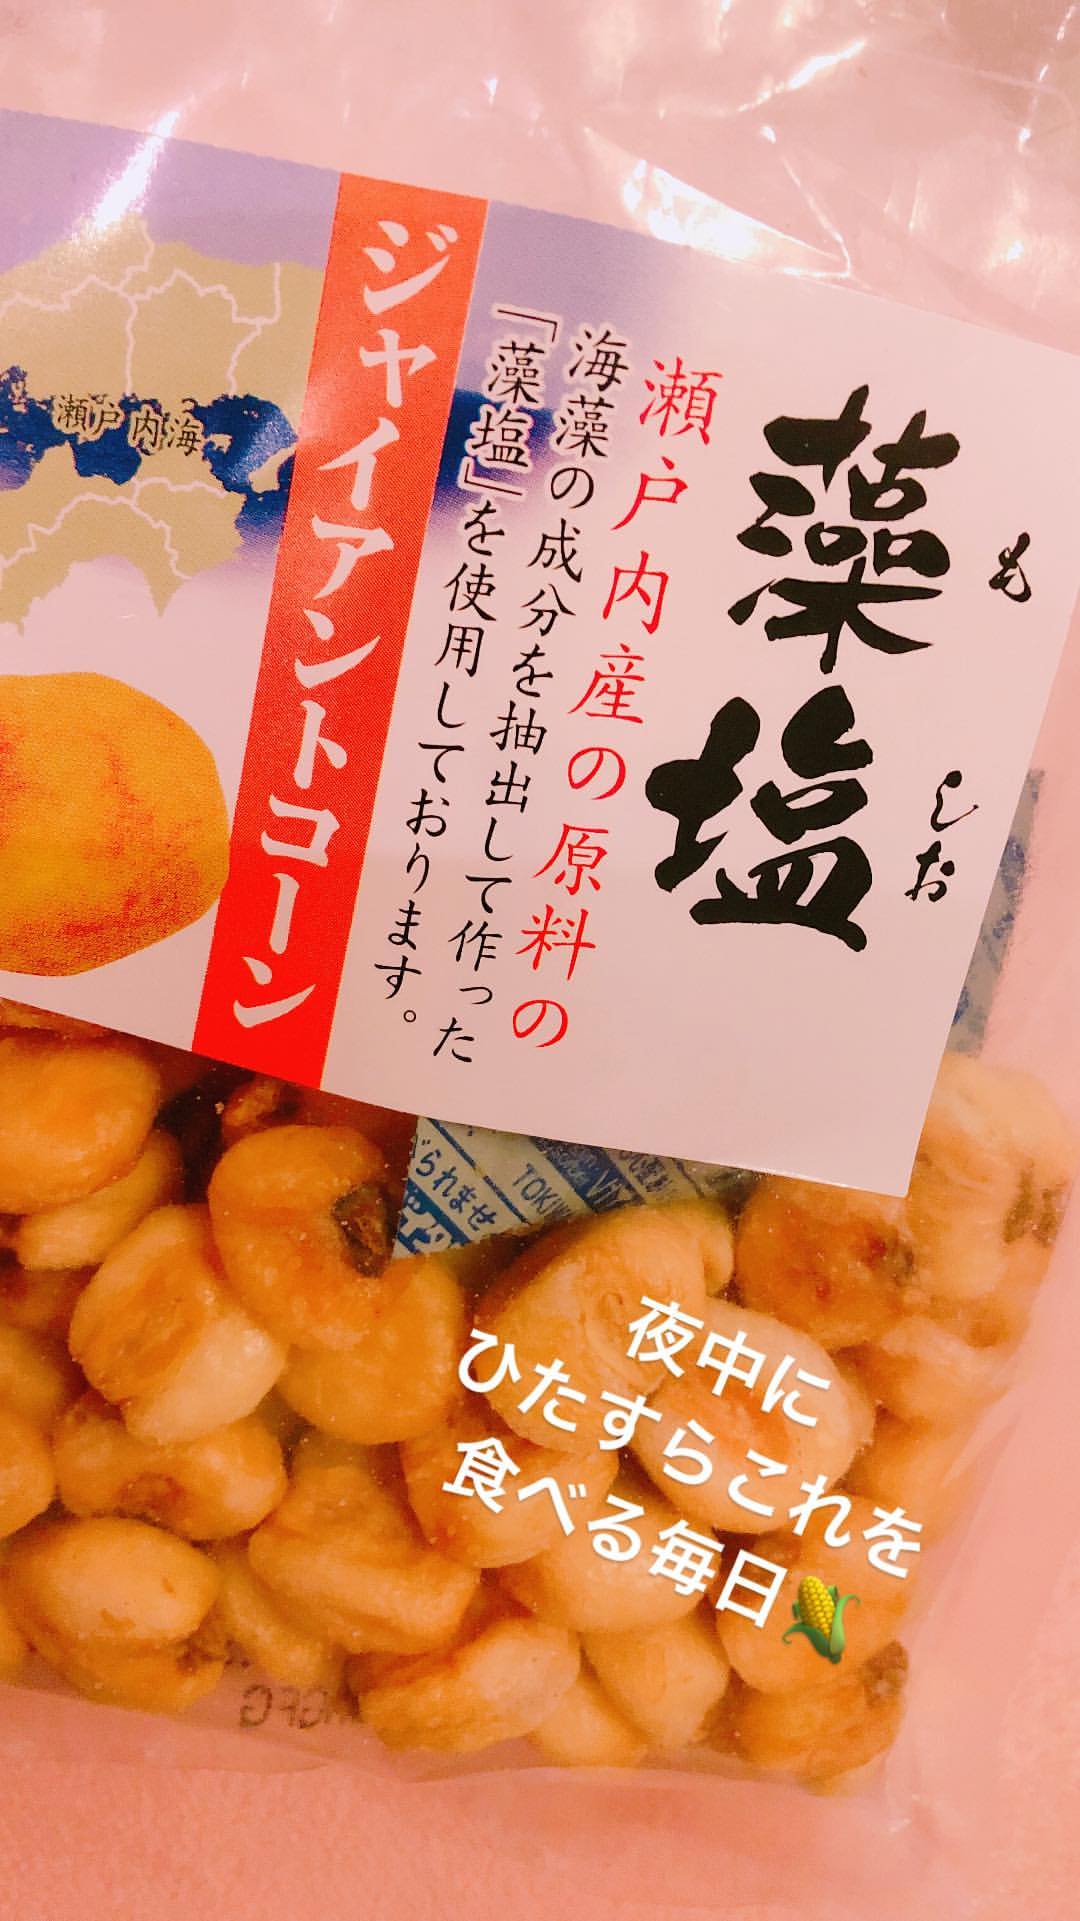 藻塩
もしお
瀬戸内産の原料の
海藻の成分を抽出して作った
「藻塩」を使用しております。
ジャイアントコーン
瀬戸内海
られませ
TOKIW
夜中に
ひたすらこれを
食べる毎日🌽